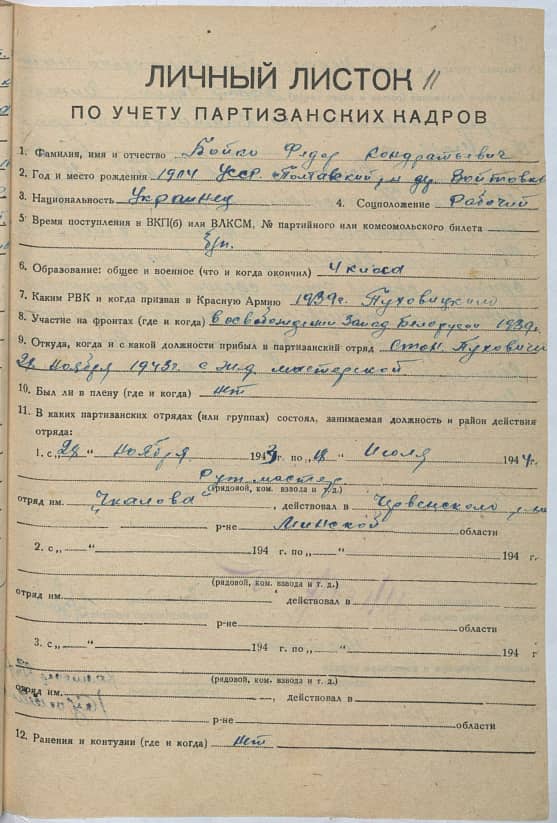 ЛИЧНЫЙ ЛИСТОК 11
ПО УЧЕТУ ПАРТИЗАНСКИХ КАДРОВ
1. Фамилия, имя и отчество Бойко Федор Кондратьевич
2. Год и место рождения 1904 УССР Полтавский р-н д. Войтовка
3. Национальность Украинец 4. Соцположение Рабочий
5. Время поступления в ВКП(б) или ВЛКСМ, № партийного или комсомольского билета
б/п.
6. Образование: общее и военное (что и когда окончил) 4 класса
7. Каким РВК и когда призван в Красную Армию 1939 г. Пуховицким
8. Участие на фронтах (где и когда) в освобождении Запад Белорусии 1939г.
9. Откуда, когда и с какой должности прибыл в партизанский отряд Станц. Пуховичи
28 ноября 1943 г. с ж.д. мастерской
10. Был ли в плену (где и когда) нет
11. В каких партизанских отрядах (или группах) состоял, занимаемая должность и район действия
отряда:
1. с „28“ ноября 1943 г. по „ “ Июля 1944 г.
мастер
(рядовой, ком. взвода и т. д.)
отряд им. Чкалова, действовал в Червенского р-на
р-не Минской области
2. с „ “ 194 г. по „ “ 194 г
(рядовой, ком. взвода и т. д.)
отряд им. , действовал в
р-не области
3. с „ “ 194 г. по „ “ 194 г
(рядовой, ком. взвода и т. д.)
отряд им. , действовал в
р-не области
12. Ранения и контузии (где и когда) нет